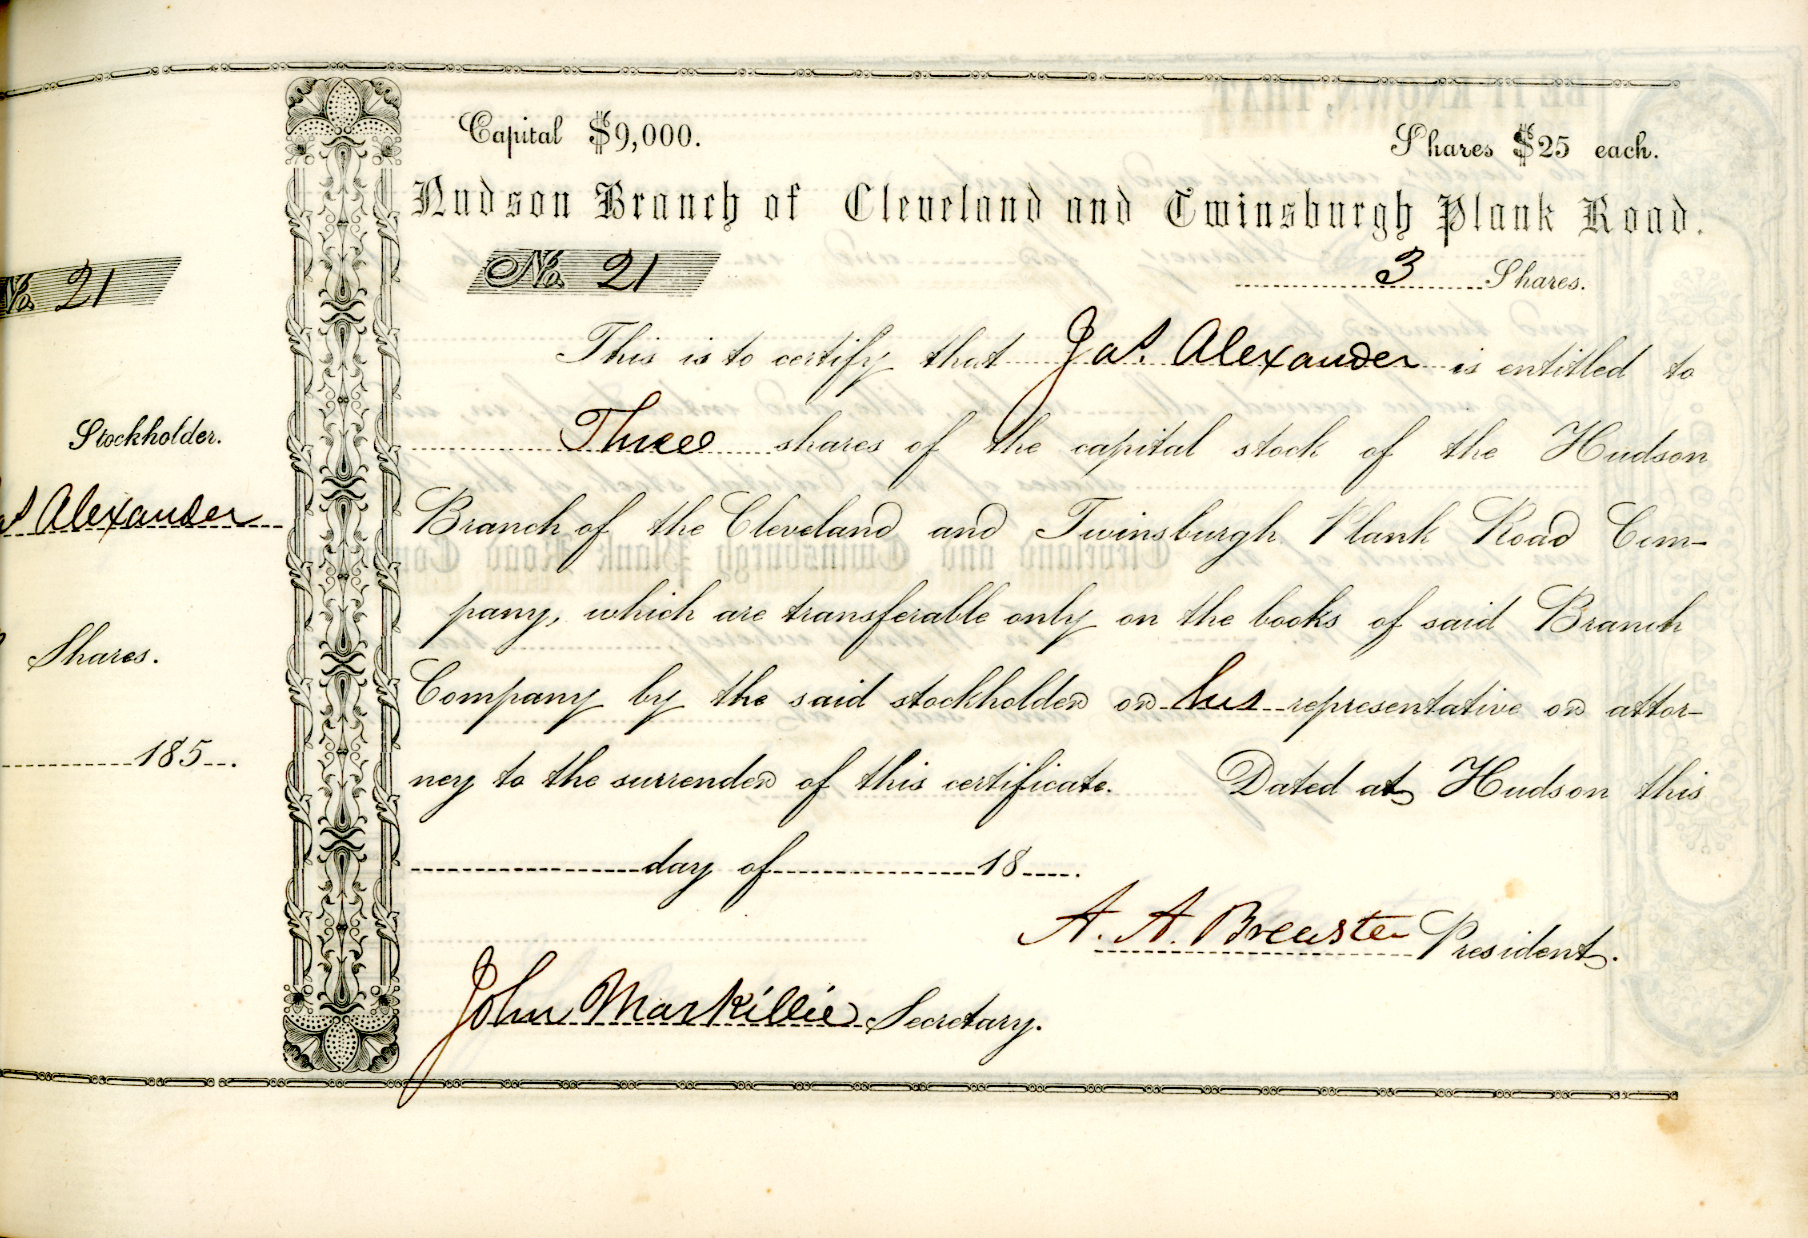 Capital $9,000.
Shares $25 each.
Hudson Branch of Cleveland and Twinsburgh Plank Road.
No. 21
No. 21
3 Shares.
This is to certify that Jas. Alexander is entitled to
Three shares of the capital stock of the Hudson
Branch of the Cleveland and Twinsburgh Plank Road Com-
pany, which are transferable only on the books of said Branch
Company by the said stockholder or his representative or attor-
ney to the surrender of this certificate. Dated at Hudson this
day of 18
A. A. Brewster President.
John Markillie Secretary.
Stockholder.
Alexander
Shares.
185